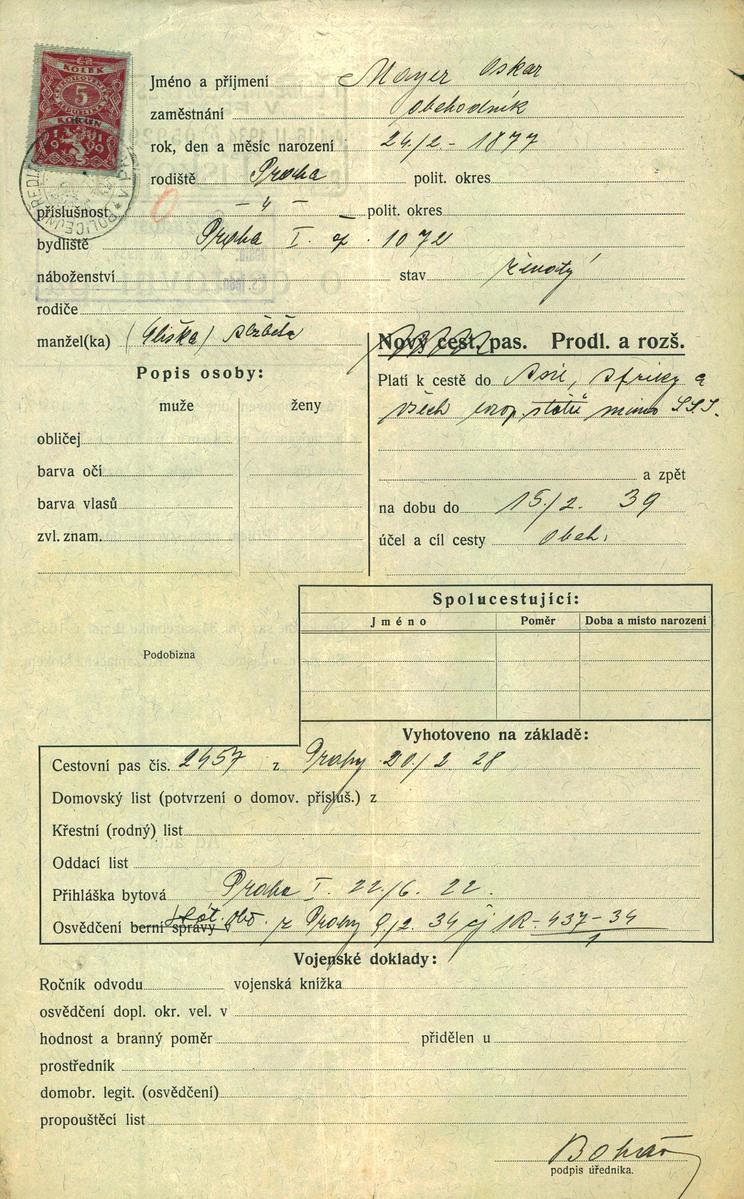 KOLEK
5
KORUN
1919
Jméno a příjmení Mayer Oskar
zaměstnání obchodník
rok, den a měsíc narození 24/2 - 1877
rodiště Praha polit. okres
příslušnost - " - polit. okres
bydliště Praha I. 1072
náboženství stav ženatý
rodiče
manžel(ka) (Eliška) Alžběta
Nový cest. pas. Prodl. a rozš.
Popis osoby:
muže ženy
obličej
barva očí
barva vlasů
zvl. znam.
Platí k cestě do Asie, Afriky a
všech evrop. států mimo SSS.
a zpět
na dobu do 15/2. 39
účel a cíl cesty obch.
Spolucestující:
Jméno Poměr Doba a místo narození
Podobizna
Vyhotoveno na základě:
Cestovní pas čís. 2457 z Prahy 20/2 28
Domovský list (potvrzení o domov. přísluš.) z
Křestní (rodný) list
Oddací list
Přihláška bytová Praha I. 22/6. 22.
Osvědčení berní správy v z Prahy 9/2. 34 čj 1R-437-34
1
Vojenské doklady:
Ročník odvodu vojenská knížka
osvědčení dopl. okr. vel. v
hodnost a branný poměr přidělen u
prostředník
domobr. legit. (osvědčení)
propouštěcí list
podpis úředníka.